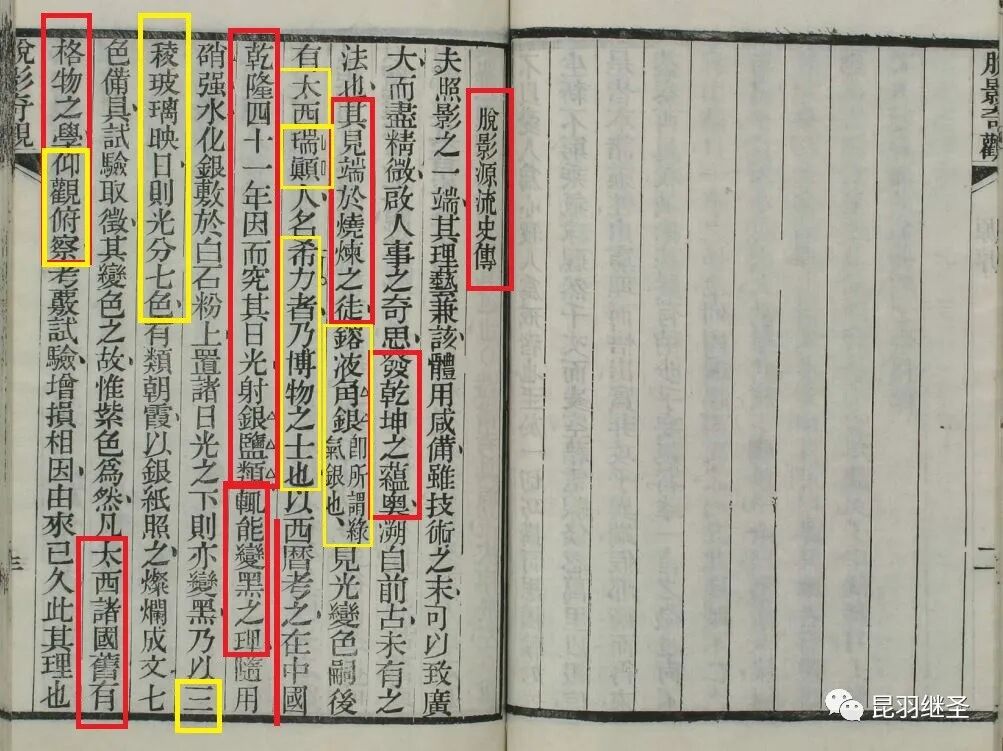 脫影奇觀
二
脫影源流史傳
夫照影之一端其理藝兼該體用咸備雖技術之末可以致廣
大而盡精微啟人事之奇思發乾坤之蘊奧溯自前古未有之
法也其見端於燒煉之徒鎔液角銀卽所謂綠氣銀也見光變色嗣後
有太西瑞顚人名希力者乃博物之士也以西曆考之在中國
乾隆四十一年因而究其日光射銀鹽類輒能變黑之理隨用
硝强水化銀敷於白石粉上置諸日光之下則亦變黑乃以三
稜玻璃映日則光分七色有類朝霞以銀紙照之燦爛成文七
色備具試驗取徵其變色之故惟紫色爲然凡太西諸國舊有
格物之學仰觀俯察考覈試驗增損相因由來已久此其理也
脫影奇觀
三
昆羽继圣